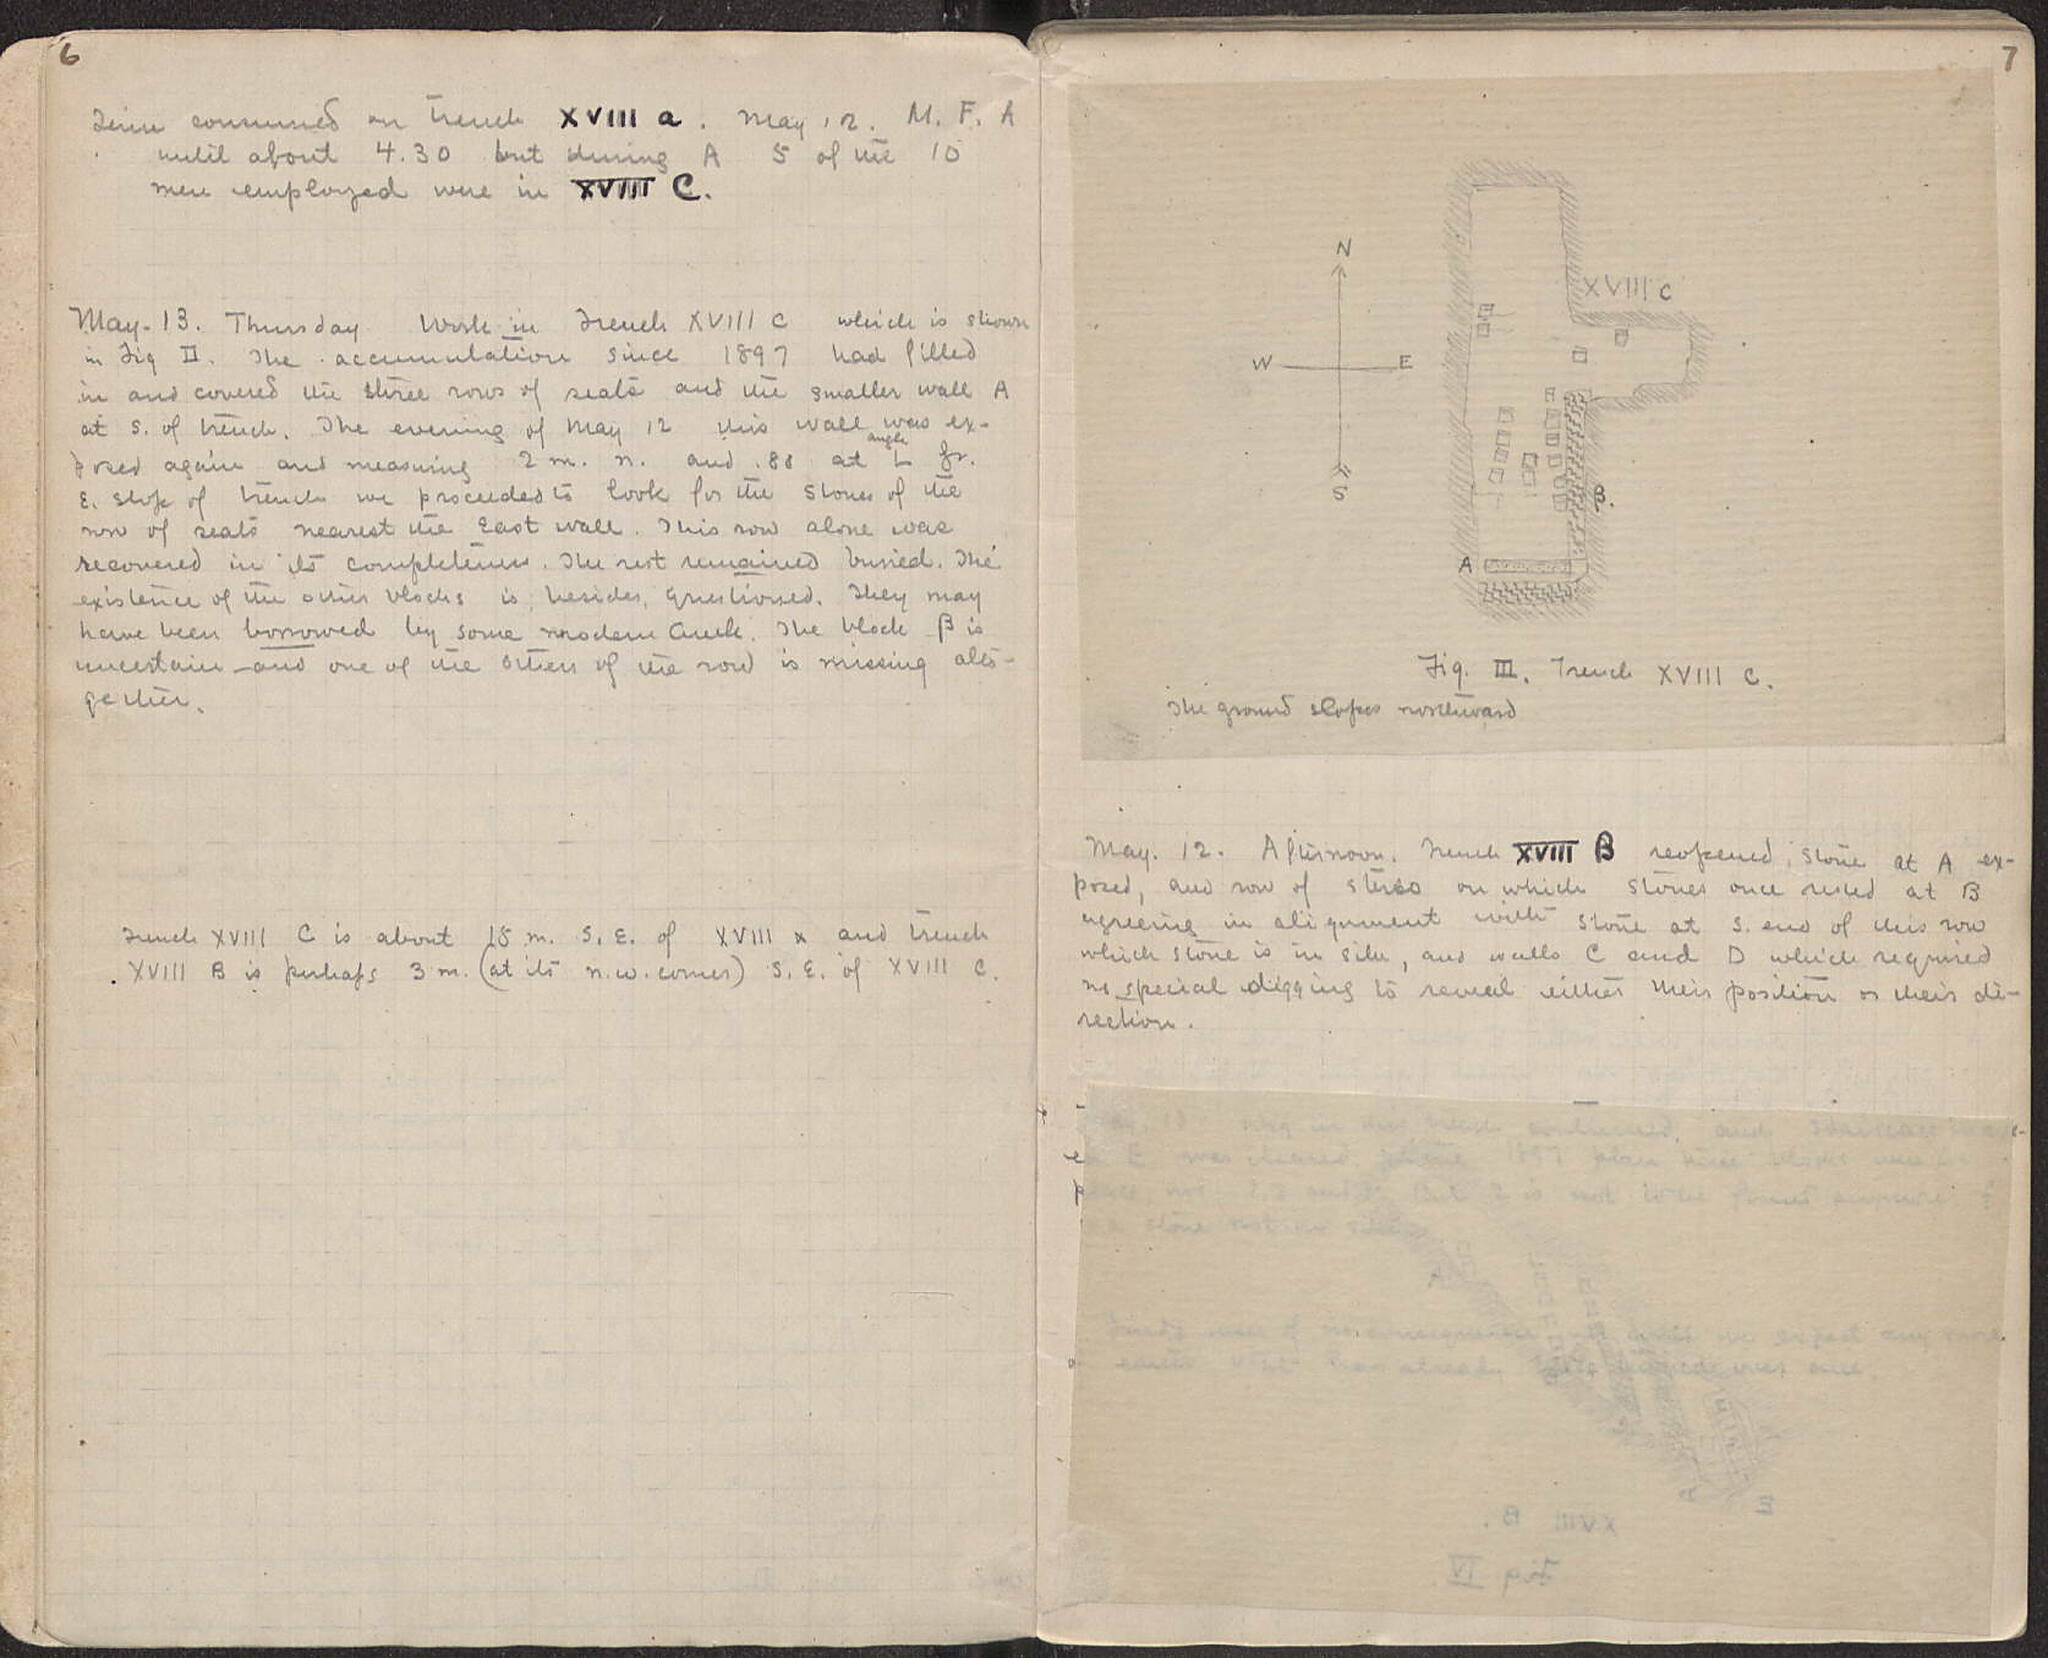 6
Time consumed on trench XVIII a. May 12. M. F. A
until about 4.30 but during A 5 of the 10
men employed were in XVIII C.
May 13. Thursday Work in Trench XVIII C which is shown
in Fig II. The accumulation since 1897 had filled
in and covered the three rows of seats and the smaller wall A
at S. of trench. The evening of May 12 this wall was ex-
posed again and measuring 2 m. n. and .80 at L angle fr.
E. slope of trench we proceeded to look for the stones of the
row of seats nearest the East wall. This row alone was
recovered in its completeness. The rest remained buried. The
existence of the other blocks is, besides, questioned. They may
have been borrowed by some modern Greek. The block β is
uncertain and one of the others of the row is missing alto-
gether.
Trench XVIII C is about 15 m. S. E. of XVIII α and trench
XVIII B is perhaps 3 m. (at its n.w. corner) S. E. of XVIII C.
7
XVIII C
N
W E
S
β.
A
Fig. III. Trench XVIII C.
The ground slopes northward
May. 12. Afternoon. Trench XVIII B reopened, stone at A ex-
posed, and row of stereo on which stones once rested at B
agreeing in alignment with stone at S. end of this row
which stone is in situ, and walls C and D which required
no special digging to reveal either their position or their di-
rection.
XVIII B.
Fig IV